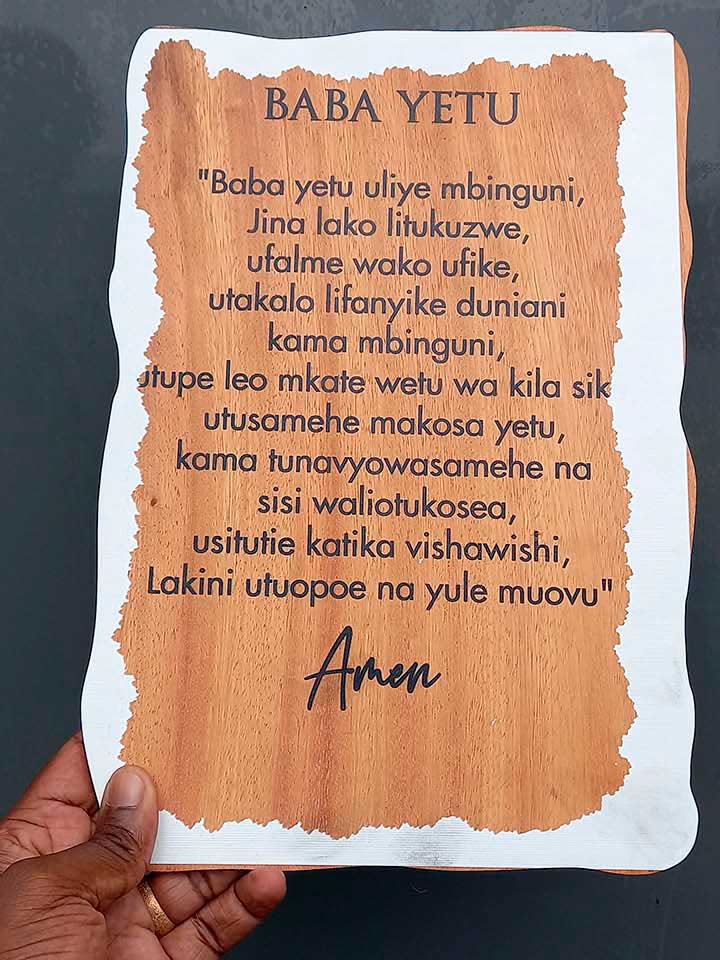 BABA YETU
"Baba yetu uliye mbinguni,
Jina lako litukuzwe,
ufalme wako ufike,
utakalo lifanyike duniani
kama mbinguni,
utupe leo mkate wetu wa kila sik
utusamehe makosa yetu,
kama tunavyowasamehe na
sisi waliotukosea,
usitutie katika vishawishi,
Lakini utuopoe na yule muovu"
Amen